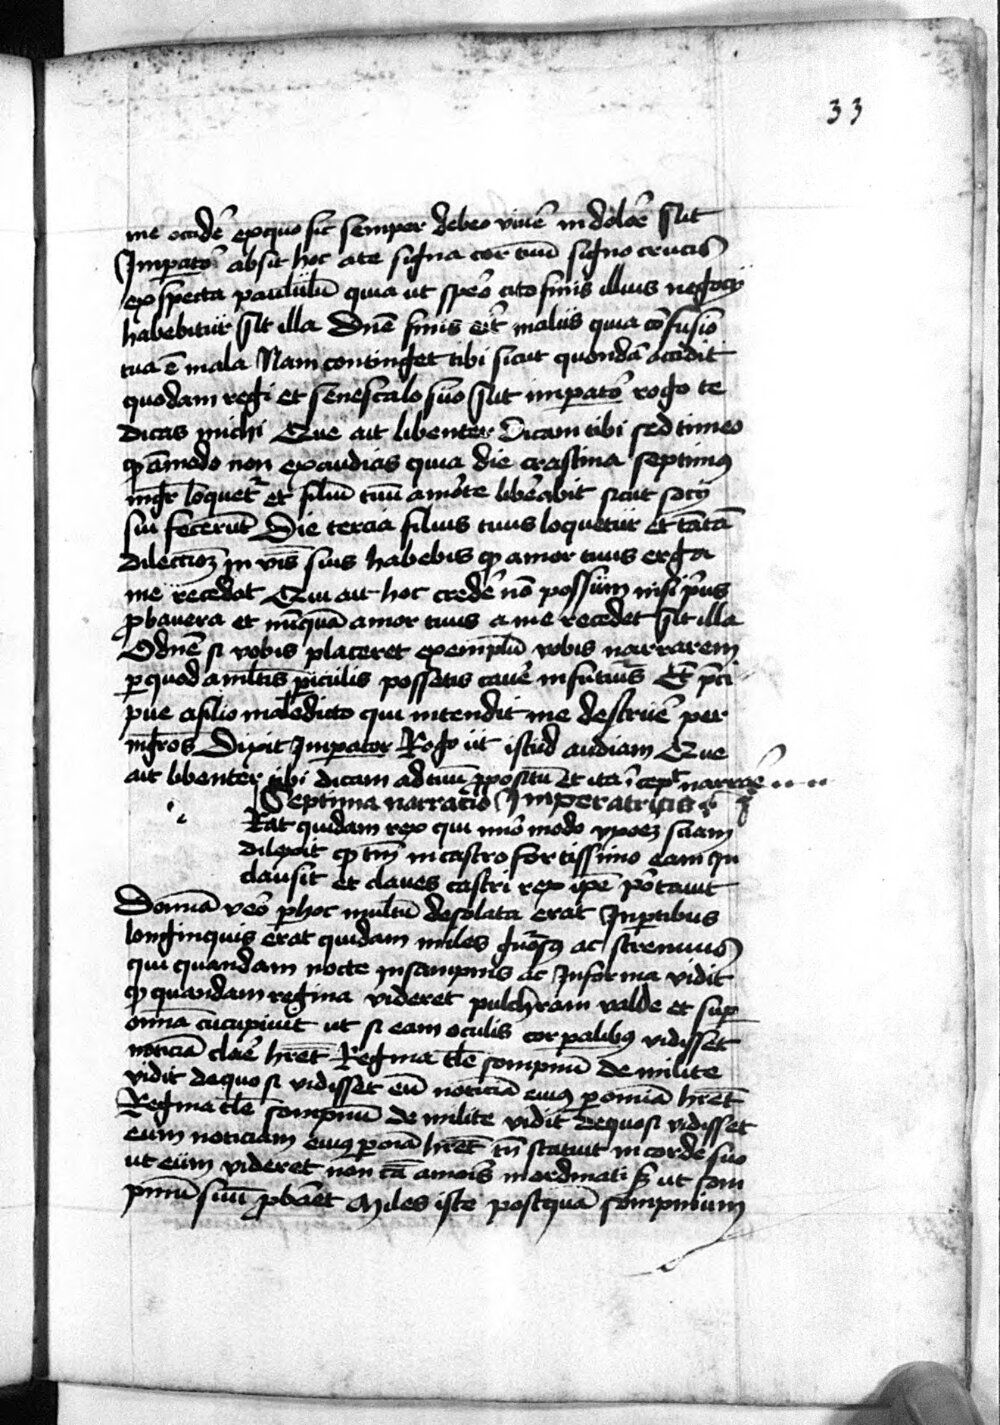 33
me occidē exquo sic semper debeo vivē in dolōe Ait
Imperatoꝛ absit hoc a te signa cor tuū signo crucis
exspecta paululū quia ut spēo cito finis illius negocij
habebitur Ait illa Dn̄e finis eīt malus quia cōfusio
tua ē mala Nam continget tibi sicut quondā accidit
quodam regi et senescalo suo Ait imperatoꝛ rogo te
dicas michi Que ait libenter dicam tibi sed timeo
ꝙ āmodo non exaudias quia die crastina septimꝰ
mgr̄ loquetᷣ et filiū tuū a morte lib̄abit sicut socij
sui fecerūt Die tercia filius tuus loquetur et tātā
dilectioꝫ in v̄bis suis habebis ꝙ amor tuus erga
me recedet Qui ait hoc credē nō possum nisi pͥus
ꝓbavera et nūquā amor tuus a me recedet Ait illa
O dn̄e si vobis placeret exemplū vobis narrarem
per quod a ml̄tis piculis possetis cavē in futuꝝ Et p̄ci
pue a filio maledicto qui intendit me destruē per
mgr̄os Dixit Imperator Rogo ut istud audiam Que
ait libenter tibi dicam ad tuū ꝓpositū Et ita īcepͭ narrāe
Septima narracio Imperatricis
Rat quidam rex qui mīo modo vxoꝫ suam
dilexit ꝙ tm̄ in castro fortissimo eam in
clausit et claves castri rex ip̄e portavit
Domīa v̄eo p hoc multū desolata erat In ptibus
longinquis erat quidam miles gn̄osꝰ ac strenuus
qui quandam nocte in sompnis ac In forma vidit
ꝙ quandam regina videret pulchram valde et sup
om̄ia cūcupivit ut si eam oculis corpalibꝰ vidisset
noticiā claē hr̄et Regina tl̄e sompniū de milite
vidit de quo si vidisset eū noticiā eiꝰ p omīa hr̄et
Regina tl̄e sompniū de milite vidit de quo si vidisset
eum noticiam eiꝰ p oīa hr̄et tn̄ statuit in corde suo
ut eum videret non cā amoris inordinati sꝫ ut som
pniū suū ꝓbaret Miles iste postquā sompnium